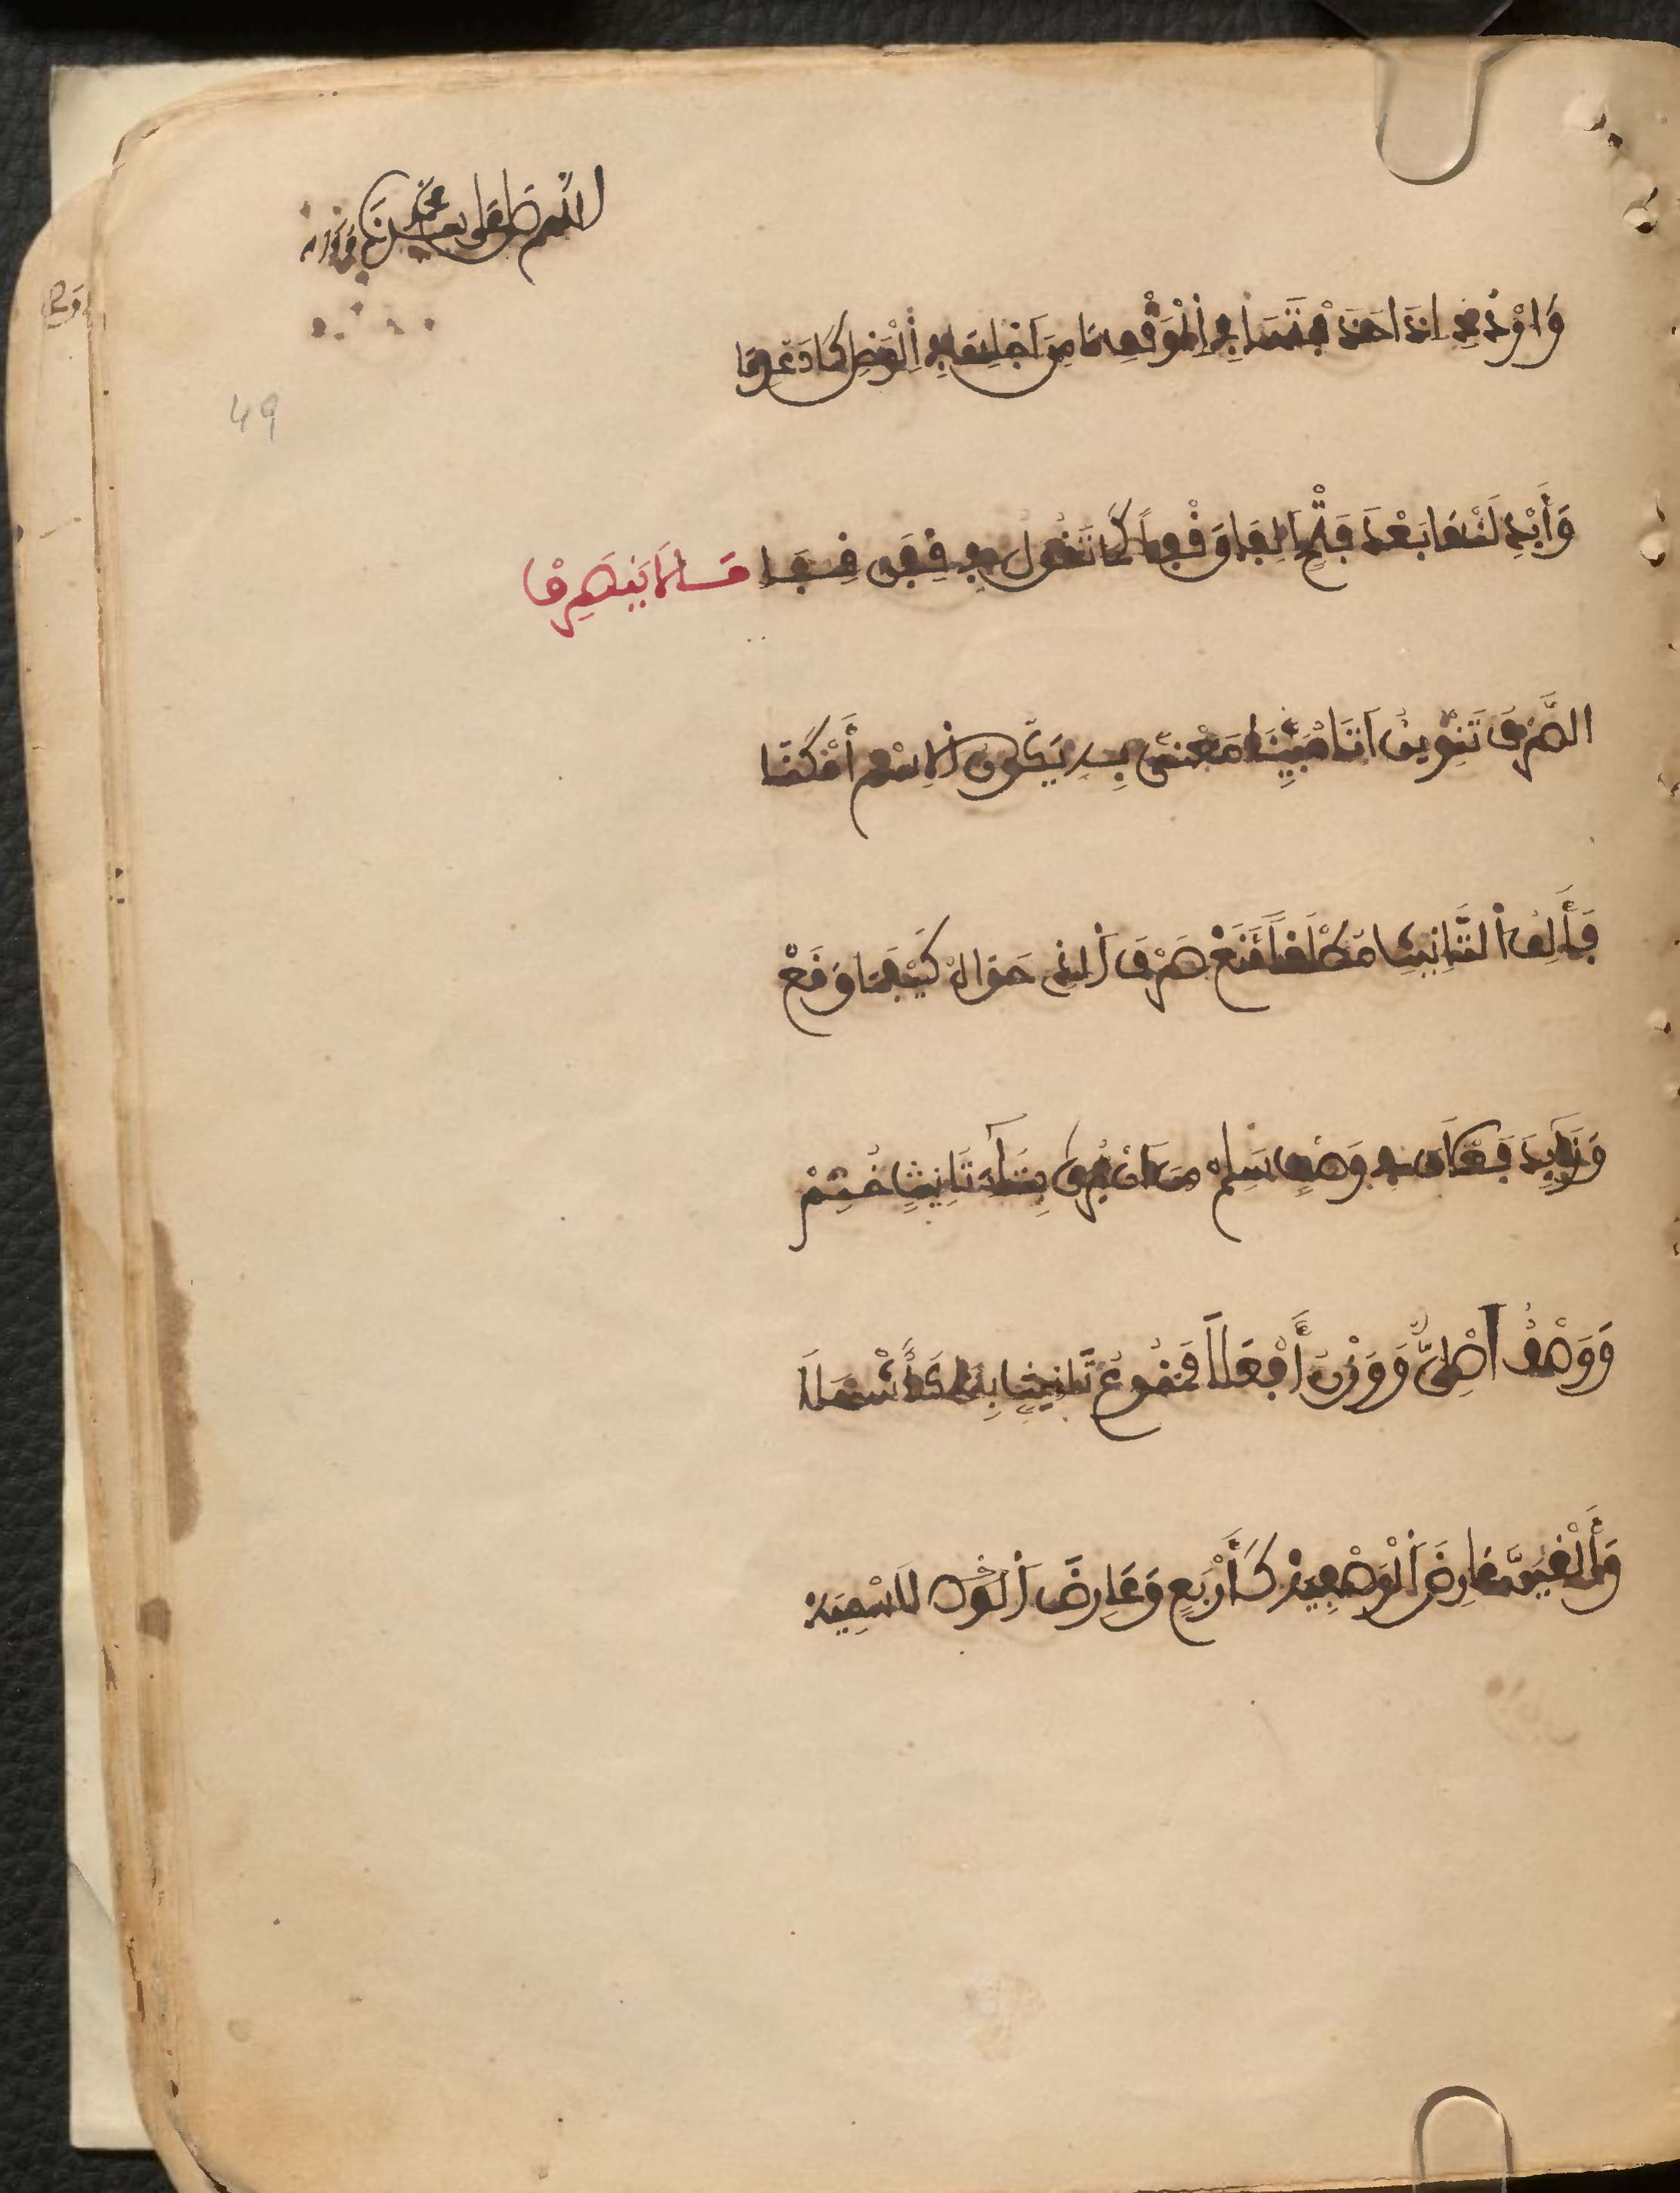 اللهم صل على سيدنا محمد
49
وَارْدُدْ إِذَا حَذَفْتَهَا فِي الْوَقْفِ مَا مِنْ أَجْلِهَا فِي الْوَصْلِ كَانَ عُدِمَا
وَأَبْدِلَنْهَا بَعْدَ فَتْحٍ أَلِفَا وَقْفاً كَمَا تَقُولُ فِي قِفَنْ قِفَا مَا لَا يَنْصَرِفْ
الصَّرْفُ تَنْوِينٌ أَتَى مُبَيِّنَا مَعْنًى بِهِ يَكُونُ الِاسْمُ أَمْكَنَا
فَأَلِفُ التَّانِيثِ مُطْلَقاً مَنَعْ صَرْفَ الَّذِي حَوَاهُ كَيْفَمَا وَقَعْ
وَزَائِدَا فَعْلَانَ فِي وَصْفٍ سَلِمْ مِنْ أَنْ يُرَى بِتَاءِ تَانِيثٍ خُتِمْ
وَوَصْفٌ أَصْلِيٌّ وَوَزْنُ أَفْعَلَا مَمْنُوعُ تَانِيثٍ بِتَا كَأَشْهَلَا
وَأَلْغِيَنَّ عَارِضَ الْوَصْفِيَّهْ كَأَرْبَعٍ وَعَارِضَ الِاسْمِيَّهْ